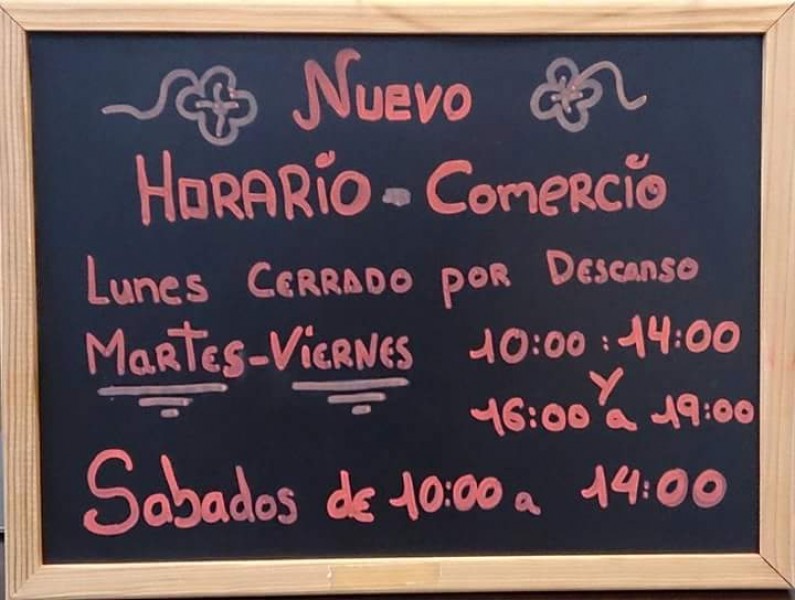 Nuevo
HORARIO - Comercio
Lunes CERRADO POR Descanso
MARTES-VIERNES 10:00 : 14:00
Y
16:00 a 19:00
Sabados de 10:00 a 14:00